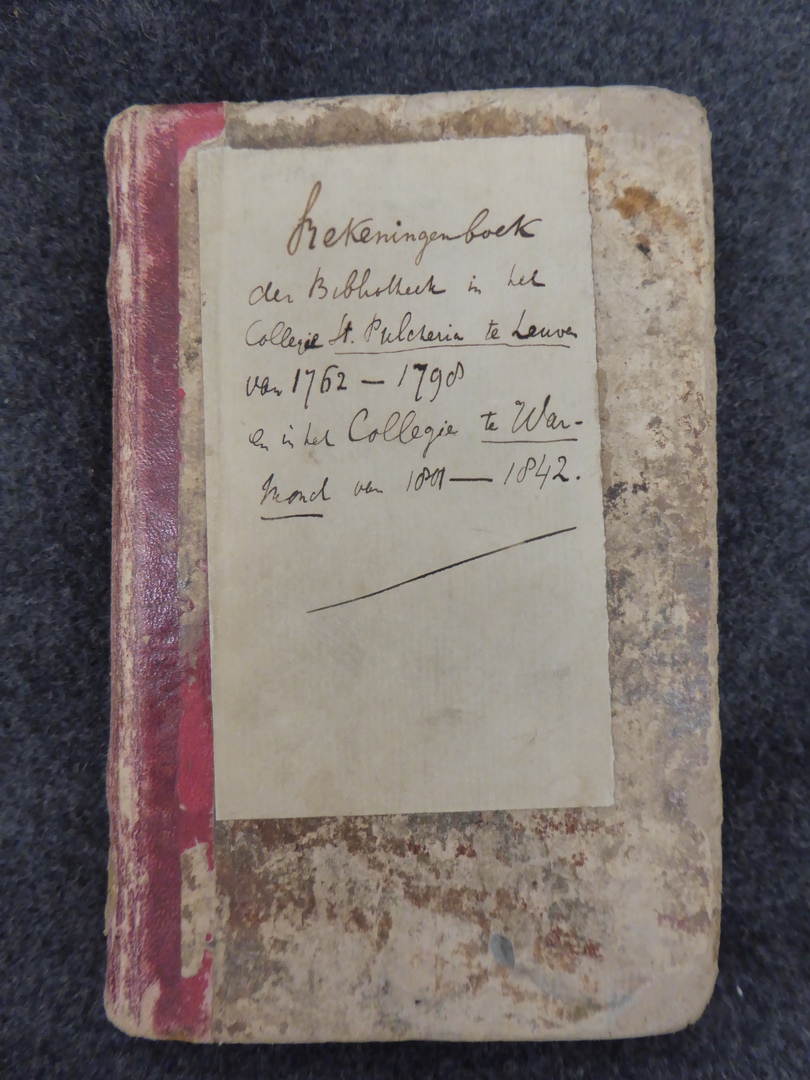 Rekeningenboek
der Bibliotheek in het
Collegie St. Pulcheria te Leuven
van 1762 — 1798
en in het Collegie te War-
mond van 1801 — 1842.